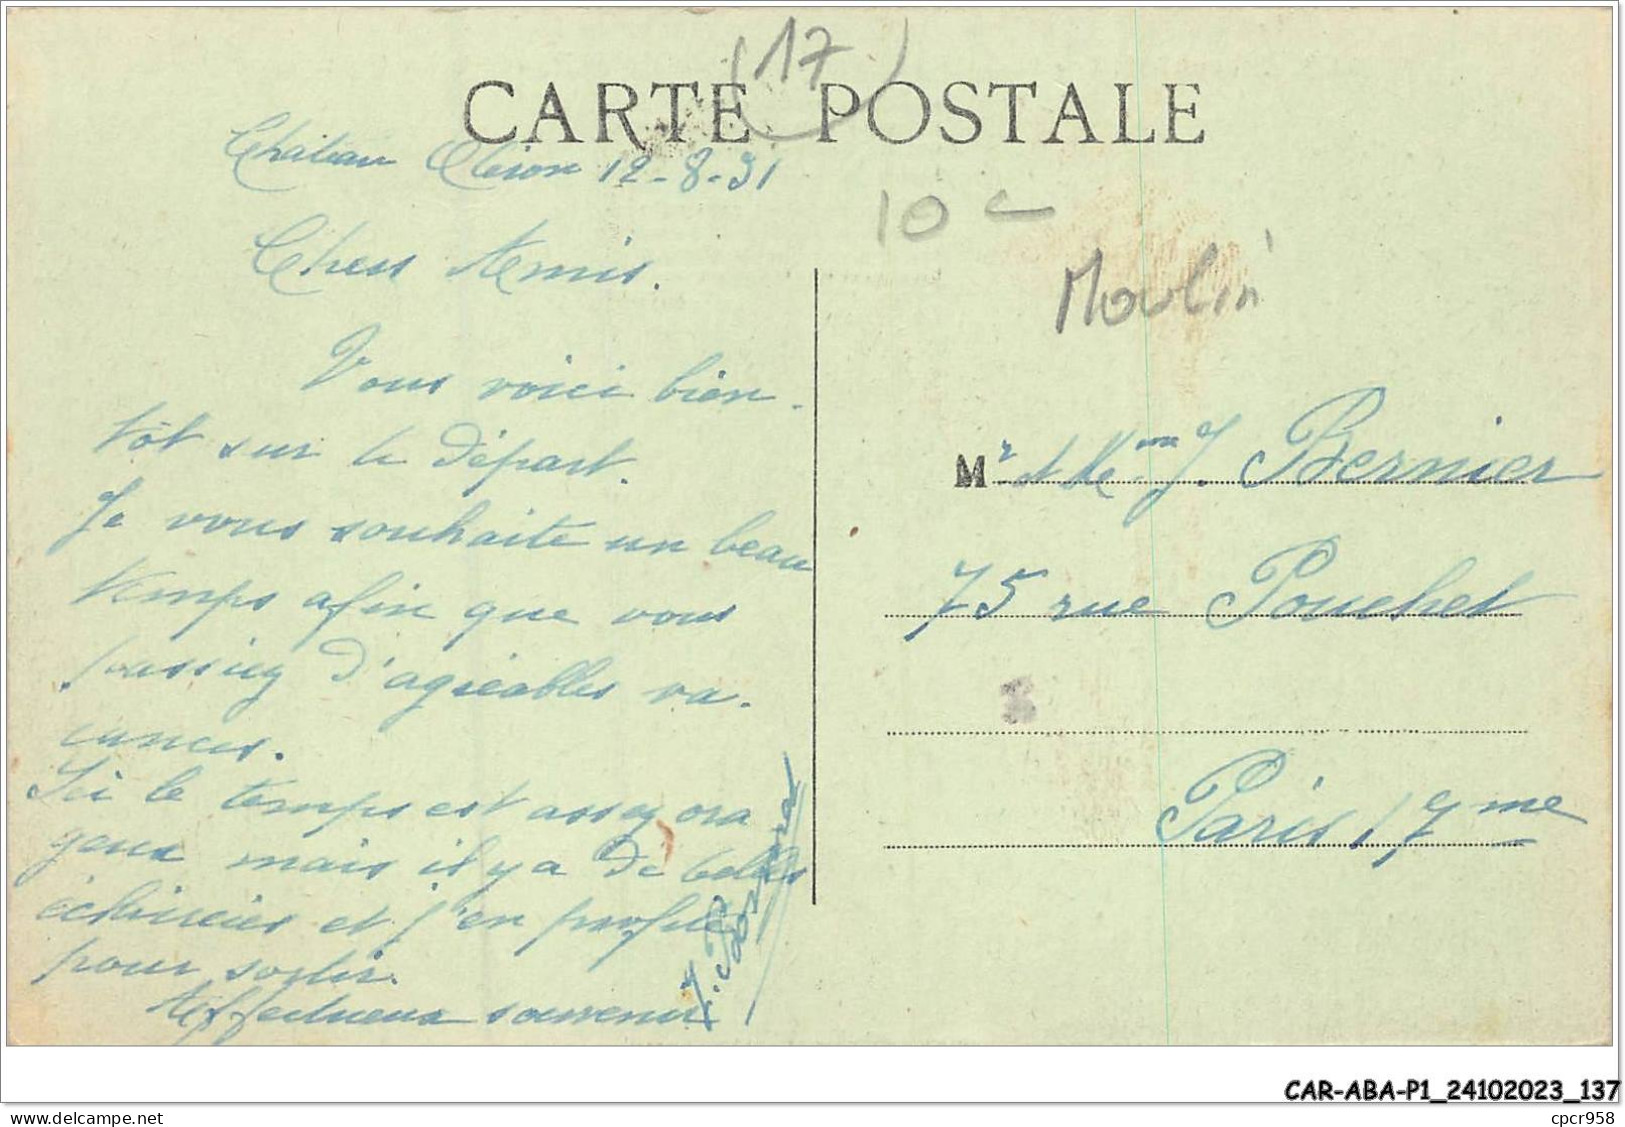 (17)
CARTE POSTALE
Chateau Oléron 12-8-31
10 c
Moulin
Chers Amis.
Vous voici bien-
tôt sur le départ.
Je vous souhaite un beau
temps afin que vous
passiez d'agréables va-
cances.
Ici le temps est assez ora
geux mais il y a de belles
éclaircies et j'en profite
pour sortir.
Affectueux souvenir
Mr et Mme J. Bernier
75 rue Pouchet
Paris 17me
CAR-ABA-P1_24102023_137
cpcr958